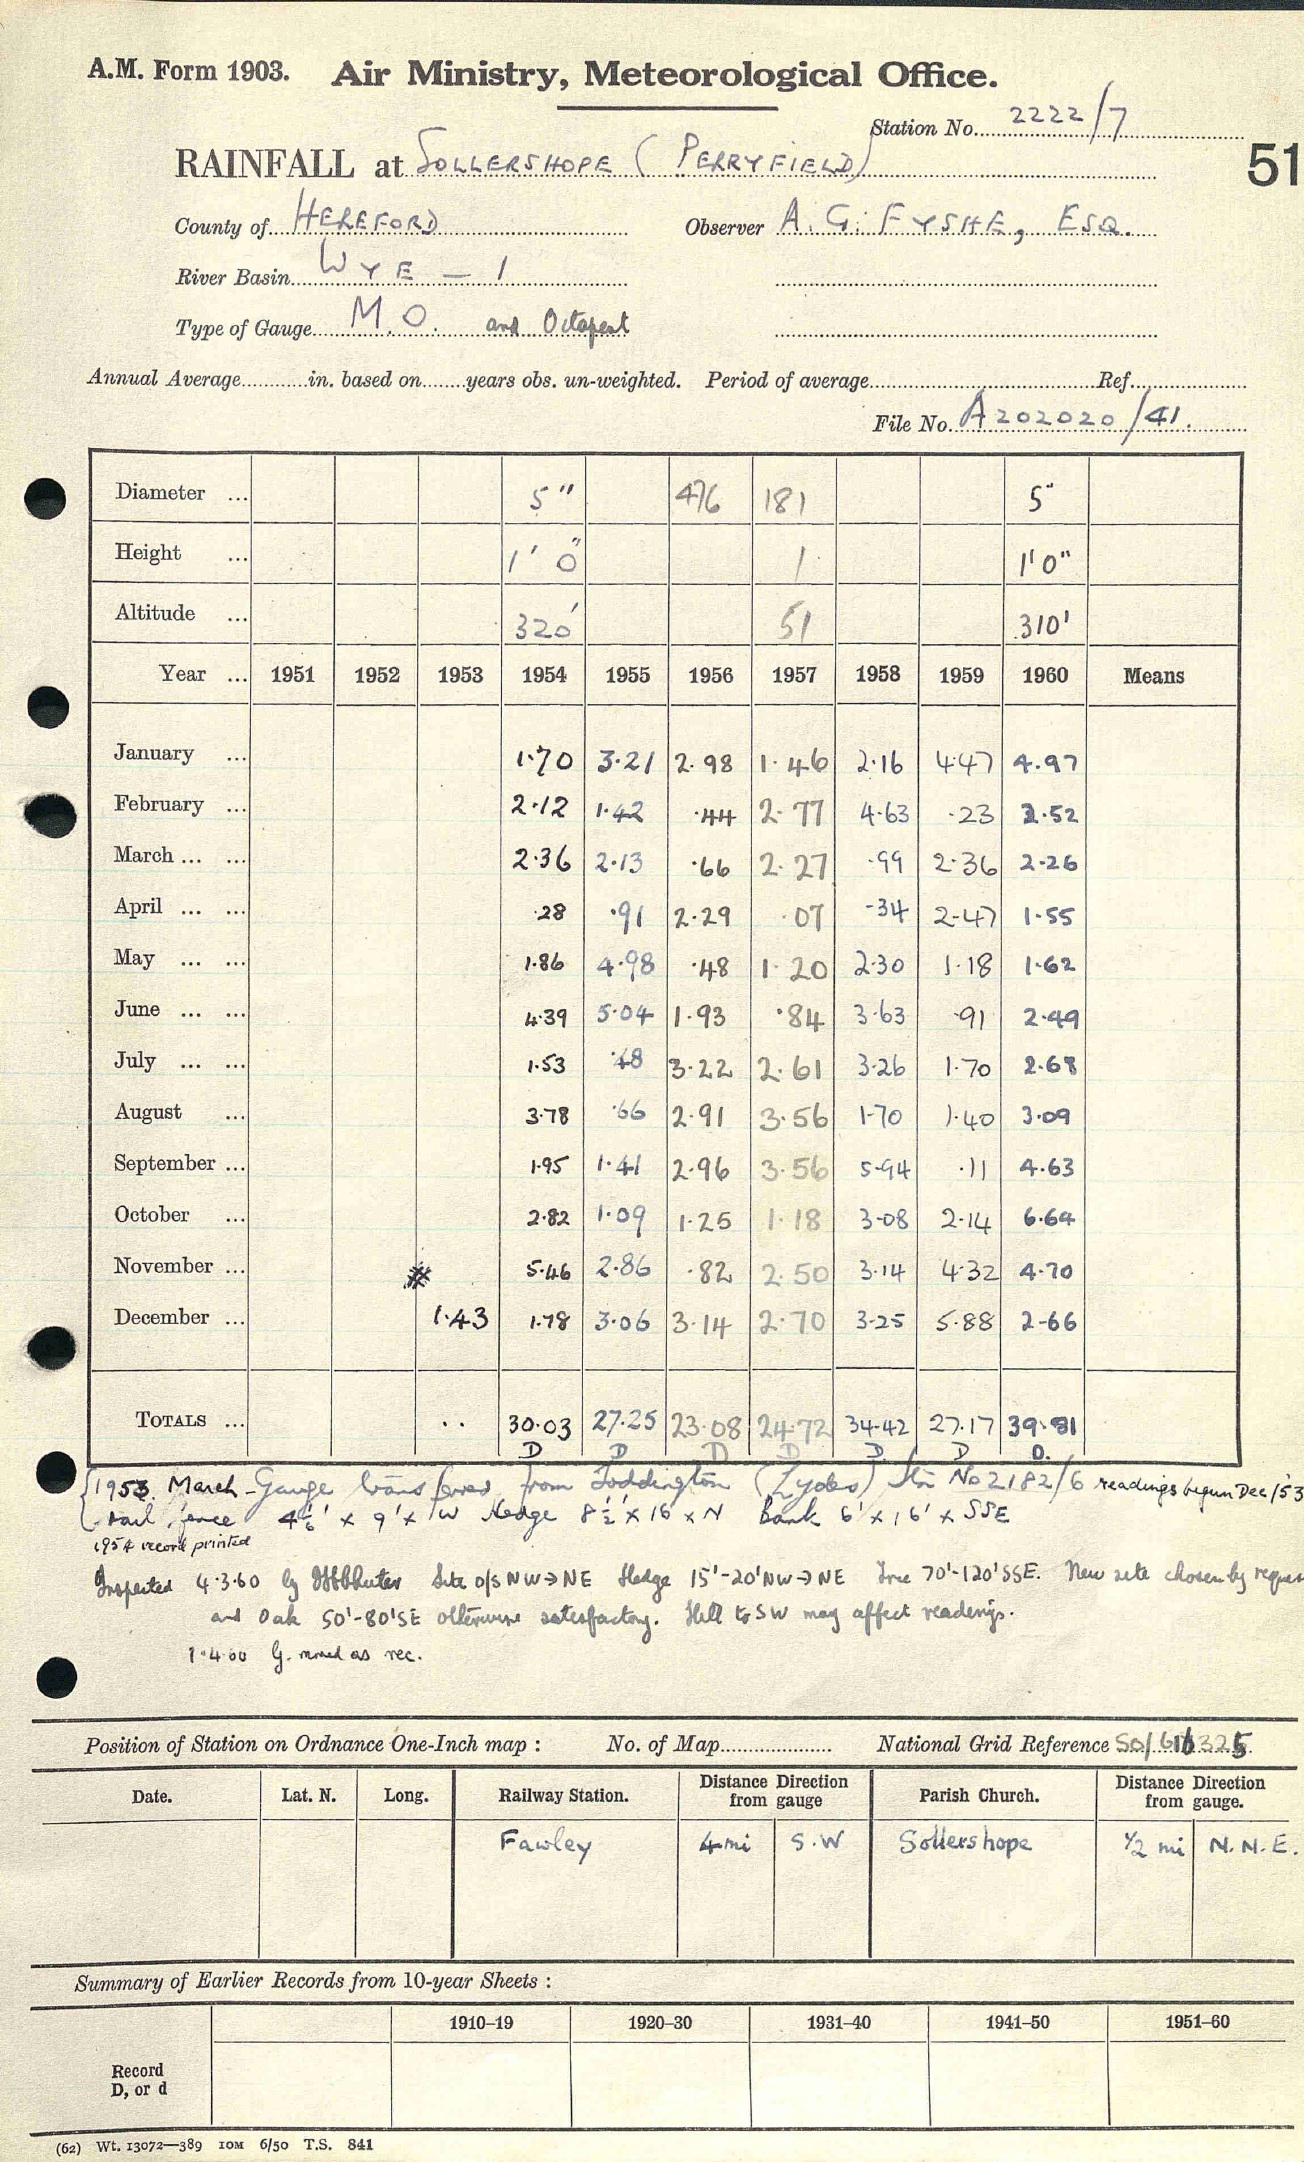 A.M. Form 1903. Air Ministry, Meteorological Office.
Station No. 2222/7
RAINFALL at SOLLERSHOPE (PERRYFIELD)
51
County of HEREFORD Observer A. G. FYSHE, ESQ.
River Basin WYE - 1
Type of Gauge M.O. and Octapent
Annual Average in. based on years obs. un-weighted. Period of average Ref.
File No. A202020/41.
Diameter ... 5" 476 181 5"
Height ... 1' 0" 1 1'0"
Altitude ... 320' 51 310'
Year ... 1951 1952 1953 1954 1955 1956 1957 1958 1959 1960 Means
January ... 1.70 3.21 2.98 1.46 2.16 4.47 4.97
February ... 2.12 1.42 .44 2.77 4.63 .23 2.52
March ... ... 2.36 2.13 .66 2.27 .99 2.36 2.26
April ... ... .28 .91 2.29 .07 .34 2.47 1.55
May ... ... 1.86 4.98 .48 1.20 2.30 1.18 1.62
June ... ... 4.39 5.04 1.93 .84 3.63 .91 2.49
July ... ... 1.53 .48 3.22 2.61 3.26 1.70 2.68
August ... 3.78 .66 2.91 3.56 1.70 1.40 3.09
September ... 1.95 1.41 2.96 3.56 5.94 .11 4.63
October ... 2.82 1.09 1.25 1.18 3.08 2.14 6.64
November ... 5.46 2.86 .82 2.50 3.14 4.32 4.70
December ... 1.43 1.78 3.06 3.14 2.70 3.25 5.88 2.66
TOTALS ... .. 30.03 27.25 23.08 24.72 34.42 27.17 39.81
D D D D D D D.
1953 March - Gauge transferred from Toddington (Lydes) Stn No 2182/6 readings begun Dec/53
rail fence 4½' x 9' x W Hedge 8½' x 16' x N Bank 6' x 16' x SSE
1954 record printed
Inspected 4.3.60 by Site o/s NW→NE Hedge 15'-20' NW→NE Tree 70'-120' SSE. New site chosen by
and Oak 50'-80' SE otherwise satisfactory. Hill to SW may affect readings.
1.4.60 G. moved as rec.
Position of Station on Ordnance One-Inch map : No. of Map National Grid Reference SO/616325
Date. Lat. N. Long. Railway Station. Distance Direction from gauge Parish Church. Distance Direction from gauge.
Fawley 4 mi S.W Sollershope ½ mi N.N.E.
Summary of Earlier Records from 10-year Sheets :
1910–19 1920–30 1931–40 1941–50 1951–60
Record
D, or d
(62) Wt. 13072—389 10M 6/50 T.S. 841